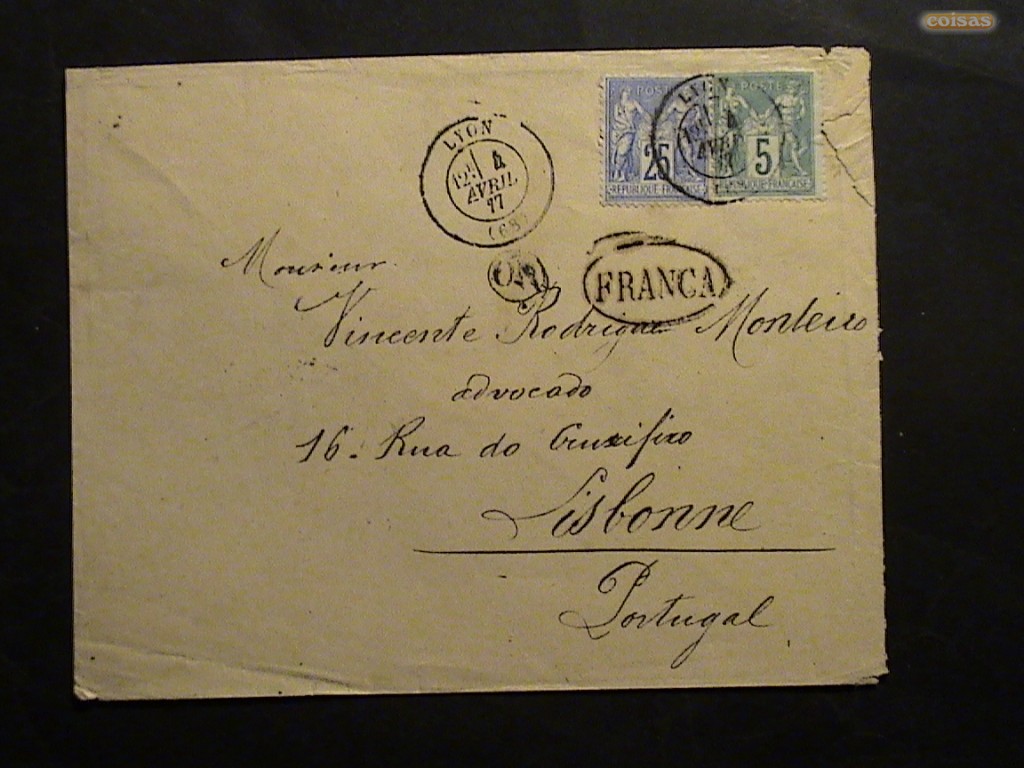 coisas
POSTE
25
REPUBLIQUE FRANÇAISE
POSTE
5
REPUBLIQUE FRANÇAISE
LYON
4
AVRIL
LYON
4
AVRIL
77
(68)
OR
FRANCA
Monsieur
Vincente Rodrigues Monteiro
advocado
16. Rua do Crusifixo
Lisbonne
Portugal